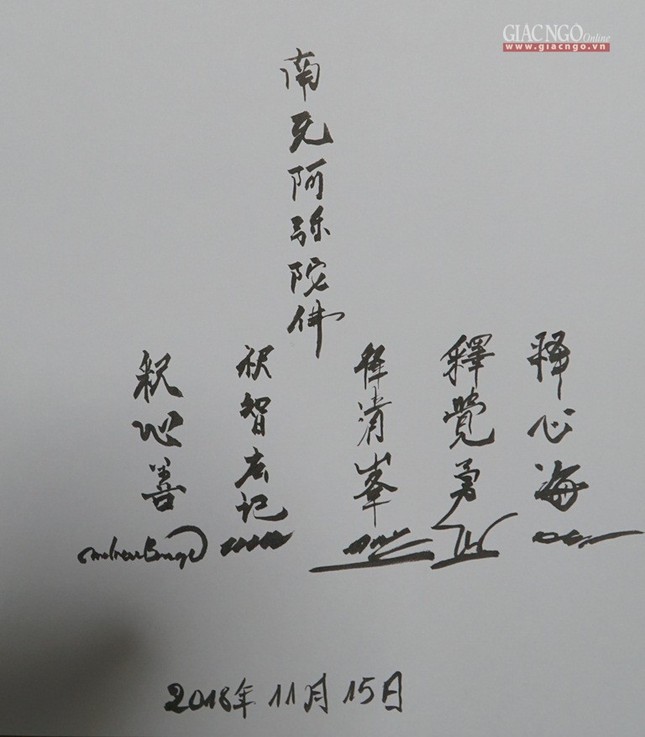 GIÁC NGỘ Online
www.giacngo.vn
南无阿弥陀佛
释心海
釋覺勇
释清峯
釈智记
釈心善
2018年 11月 15日